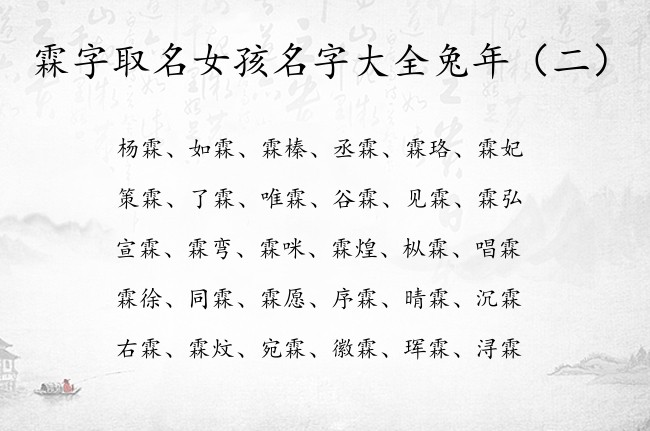 霖字取名女孩名字大全兔年（二）
杨霖、如霖、霖榛、丞霖、霖珞、霖妃
策霖、了霖、唯霖、谷霖、见霖、霖弘
宣霖、霖弯、霖咪、霖煌、枞霖、唱霖
霖徐、同霖、霖愿、序霖、晴霖、沉霖
右霖、霖炆、宛霖、徽霖、珲霖、浔霖